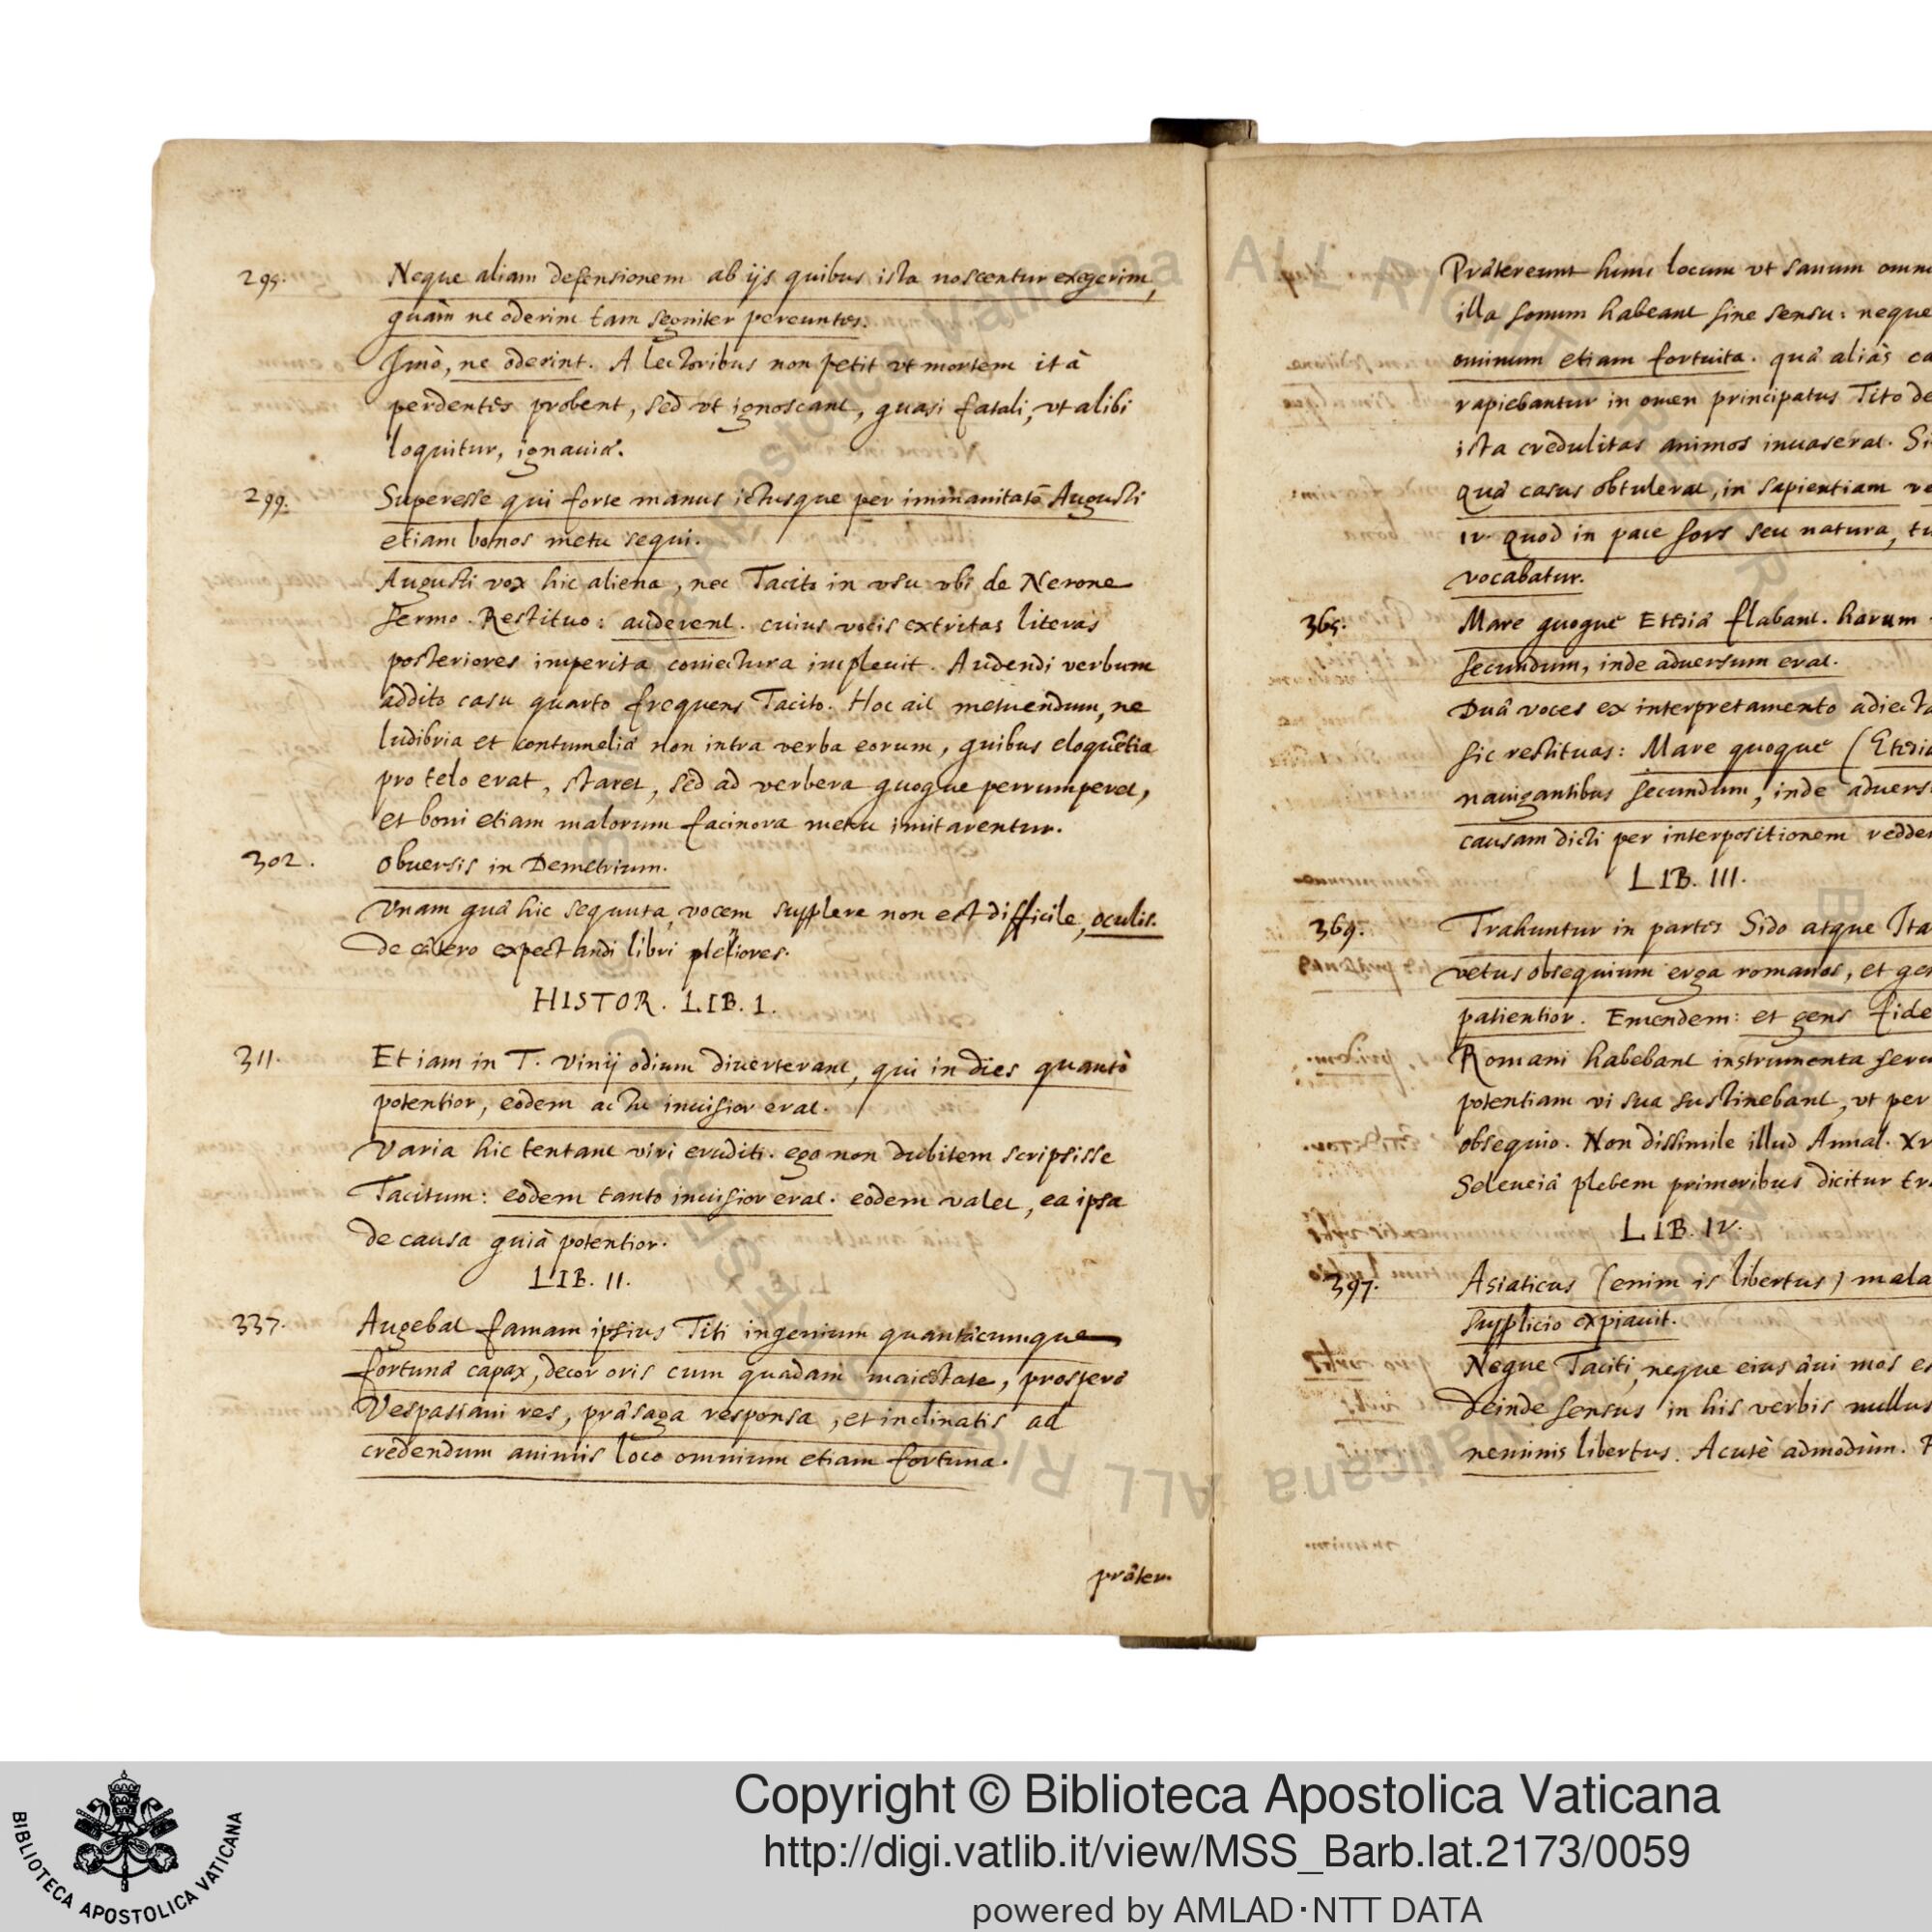 295. Neque aliam defensionem ab ijs quibus ista noscentur exegerim,
quàm ne oderim tam segniter pereuntes.
Imò, ne oderint. A lectoribus non petit vt mortem ità
perdentes probent, sed vt ignoscant, quasi fatali, vt alibi
loquitur, ignauiæ.
299. Superesse qui forte manus ictusque per immanitatē Augusti
etiam bonos metu sequi.
Augusti vox hic aliena, nec Tacito in vsu vbi de Nerone
sermo. Restituo: auderent. cuius vocis extritas literas
posteriores imperita coniectura impleuit. Audendi verbum
addito casu quarto frequens Tacito. Hoc ait metuendum, ne
ludibria et contumeliæ non intra verba eorum, quibus eloquētia
pro telo erat, staret, sed ad verbera quoque perrumperet,
et boni etiam malorum facinora metu imitarentur.
302. Obuersis in Demetrium.
Vnam quæ hic sequuta vocem supplere non est difficile, oculis.
De cætero expectandi libri pleniores.
HISTOR. LIB. I.
311. Et iam in T. Vinij odium diuerterant, qui in dies quantò
potentior, eodem actu inuisior erat.
Varia hic tentant viri eruditi. ego non dubitem scripsisse
Tacitum: eodem tanto inuisior erat. eodem valet, ea ipsa
de causa quià potentior.
LIB. II.
337. Augebat famam ipsius Titi ingenium quantæcumque
fortunæ capax, decor oris cum quadam maiestate, prosperæ
Vespasiani res, præsaga responsa, et inclinatis ad
credendum animis loco omnium etiam fortuna.
præter.
Prætereunt hunc locum vt sanum omn
illa sonum habeant sine sensu: neque
ominum etiam fortuita. quæ aliàs ca
rapiebantur in omen principatus Tito de
ista credulitas animos inuaserat. Si
quæ casus obtulerat, in sapientiam ve
IV. quod in pace fors seu natura, tu
vocabatur.
365. Mare quoque Etesiæ flabant. harum
secundum, inde aduersum erat.
Duæ voces ex interpretamento adiecta
sic restituas: Mare quoque (Etesia
nauigantibus secundum, inde aduers
causam dicti per interpositionem redde
LIB. III.
369. Trahuntur in partes Sido atque Ita
vetus obsequium erga romanos, et gen
patientior. Emendem: et gens fide
Romani habebant instrumenta seru
potentiam vi sua sustinebant, vt per
obsequio. Non dissimile illud Annal. XV
Seleuciæ plebem primoribus dicitur tra
LIB. IV.
397. Asiaticus (enim is libertus) mala
supplicio expiauit.
Neque Taciti, neque eius æui mos es
Deinde sensus in his verbis nullus
neminis libertus. Acutè admodùm.
BIBLIOTECA APOSTOLICA VATICANA
Copyright © Biblioteca Apostolica Vaticana
http://digi.vatlib.it/view/MSS_Barb.lat.2173/0059
powered by AMLAD·NTT DATA